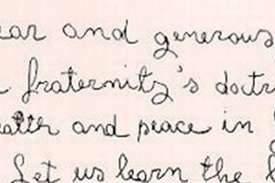 ear and generous
fraternity's doctr
and peace in
Let us learn the